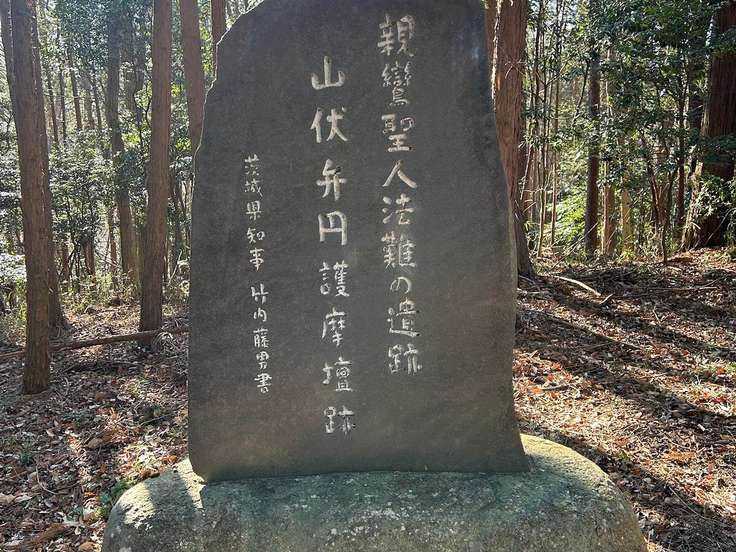 親鸞聖人法難の遺跡
山伏弁円護摩壇跡
茨城県知事 竹内藤男書